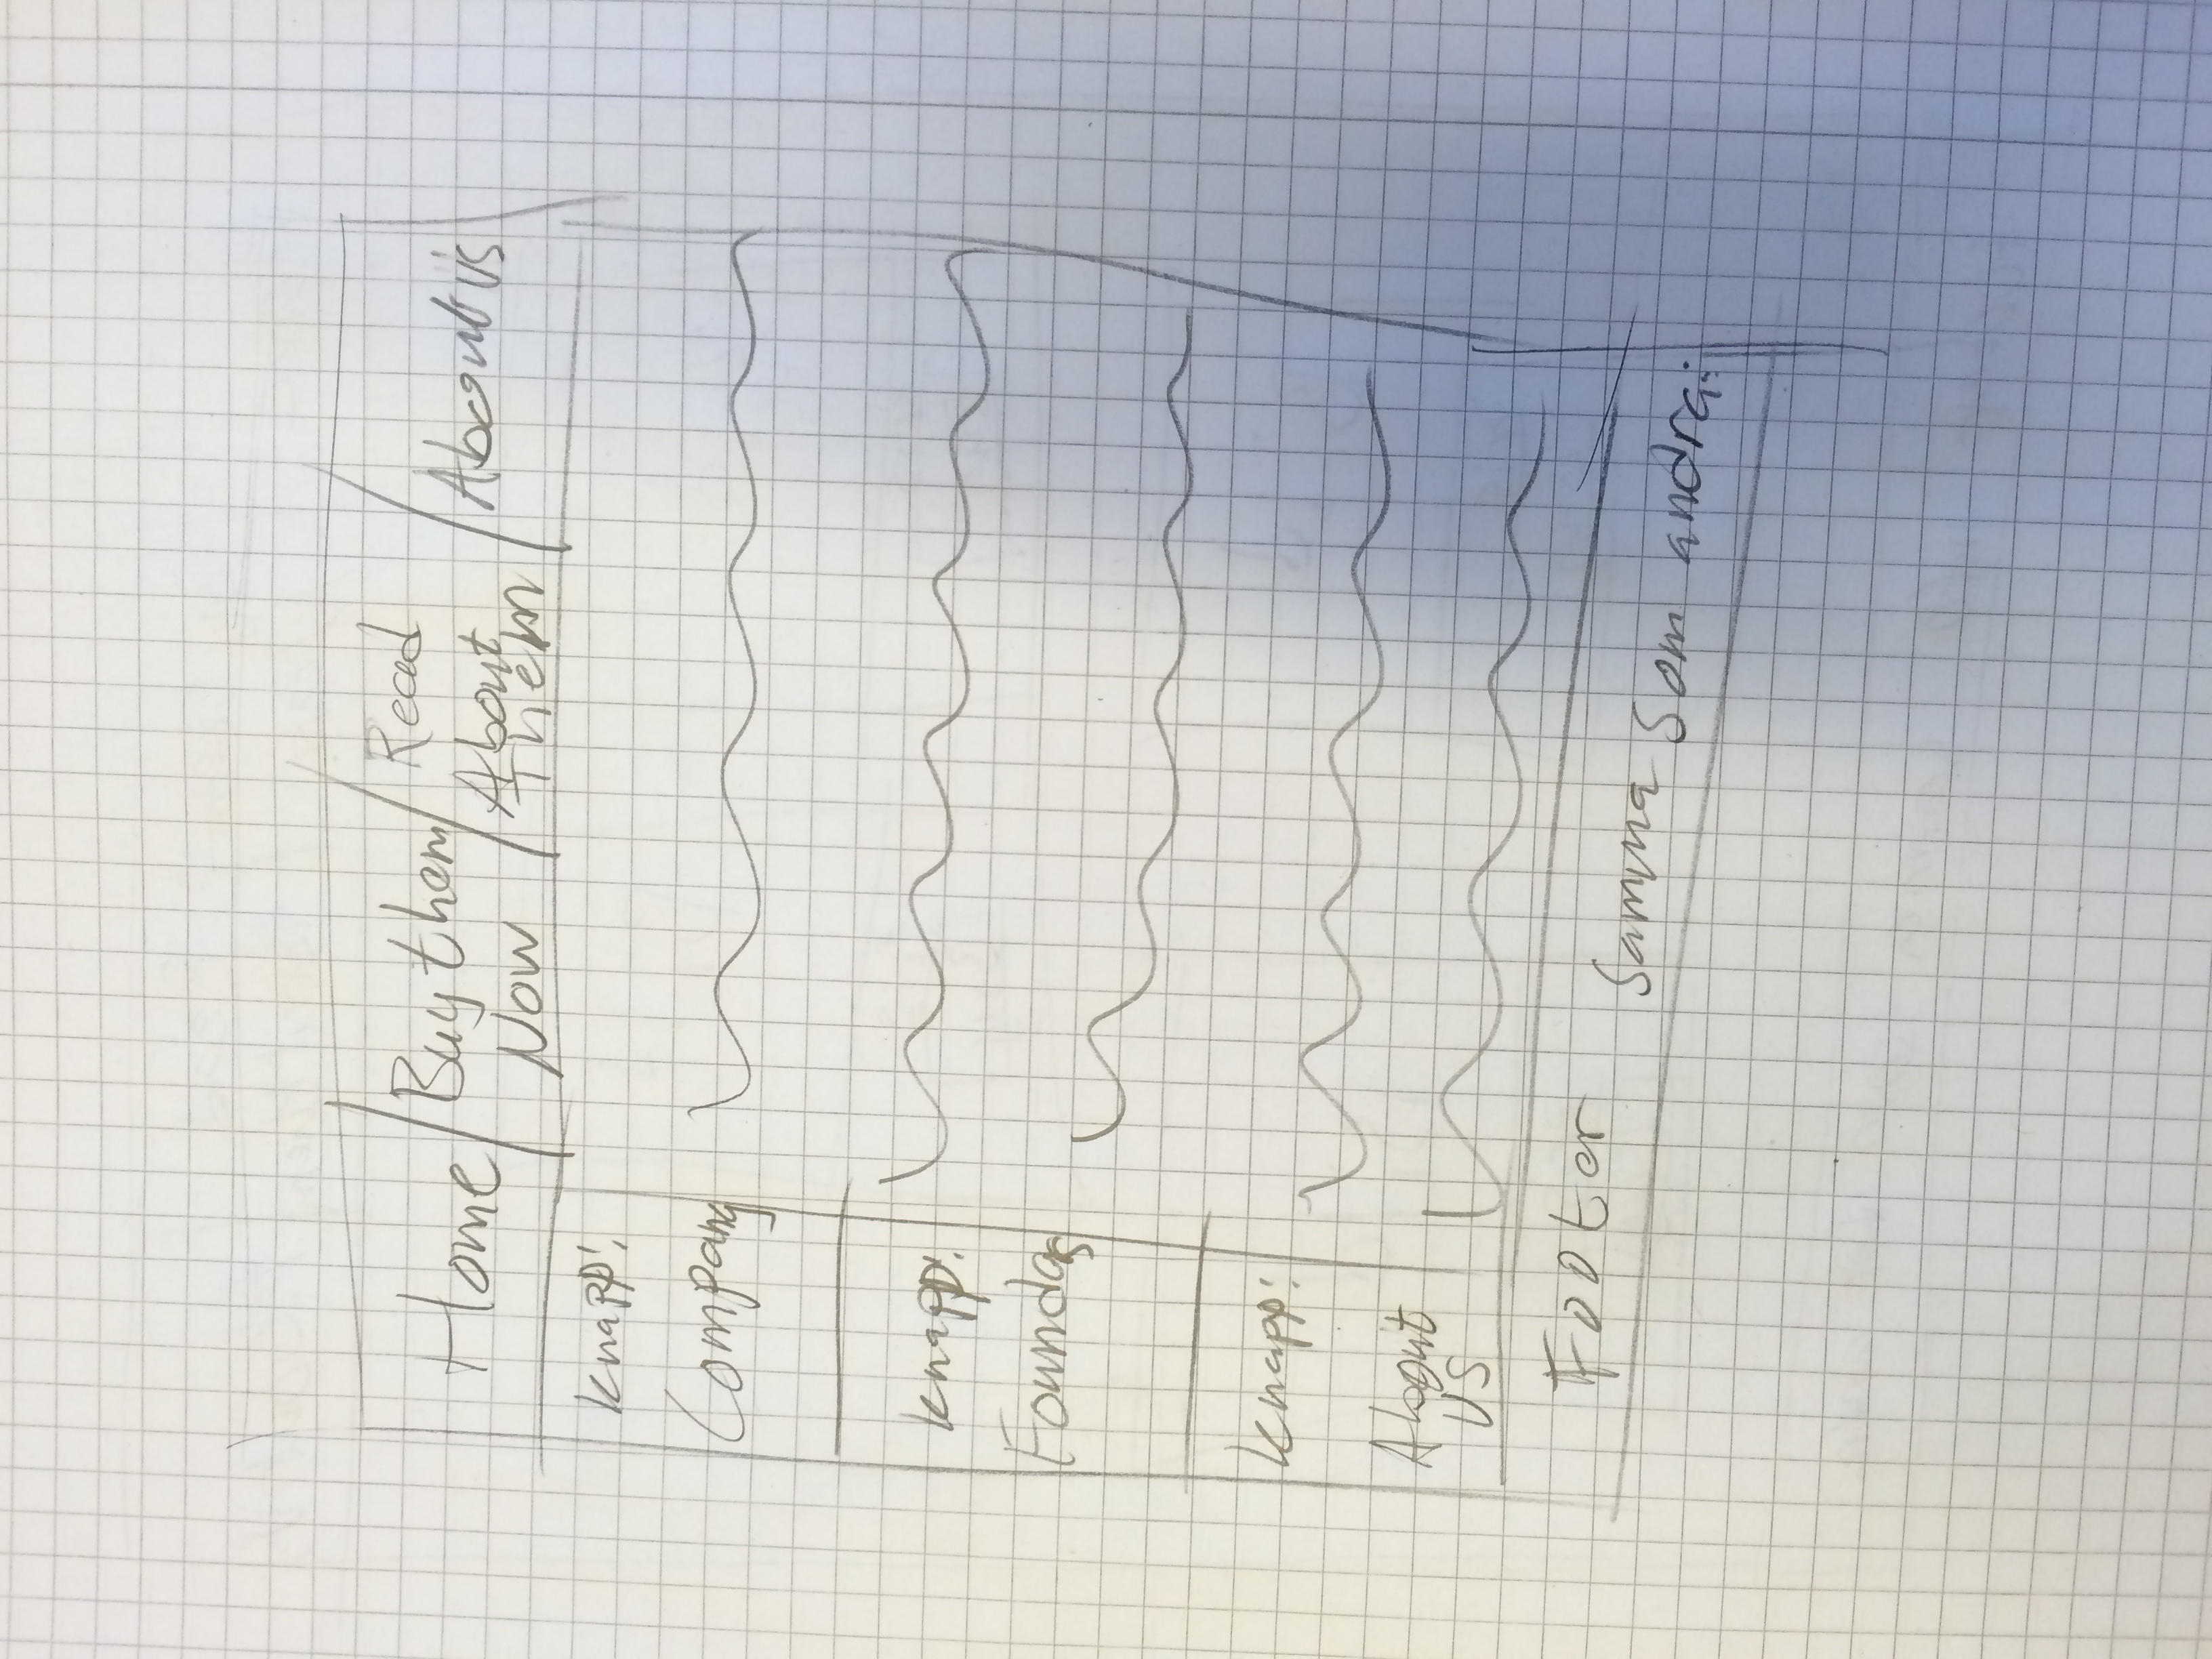 Home
Buy them
Now
Read
About
Them
About us
Knapp:
Company
Knapp:
Knapp:
About
US
Footer Samma som andra: